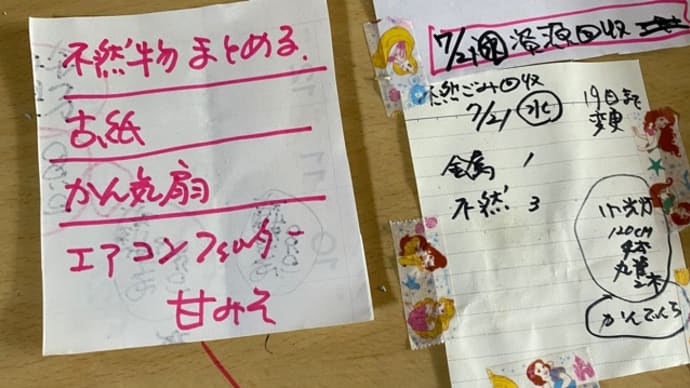 不燃物まとめる.
古紙
かん気扇
エアコンフィルター
甘みそ
7/21 資源回収
不燃ごみ回収
7/21 水
19日まで
変更
金属 1
不燃 3
120cm
4本
丸管
2本
かんでんち